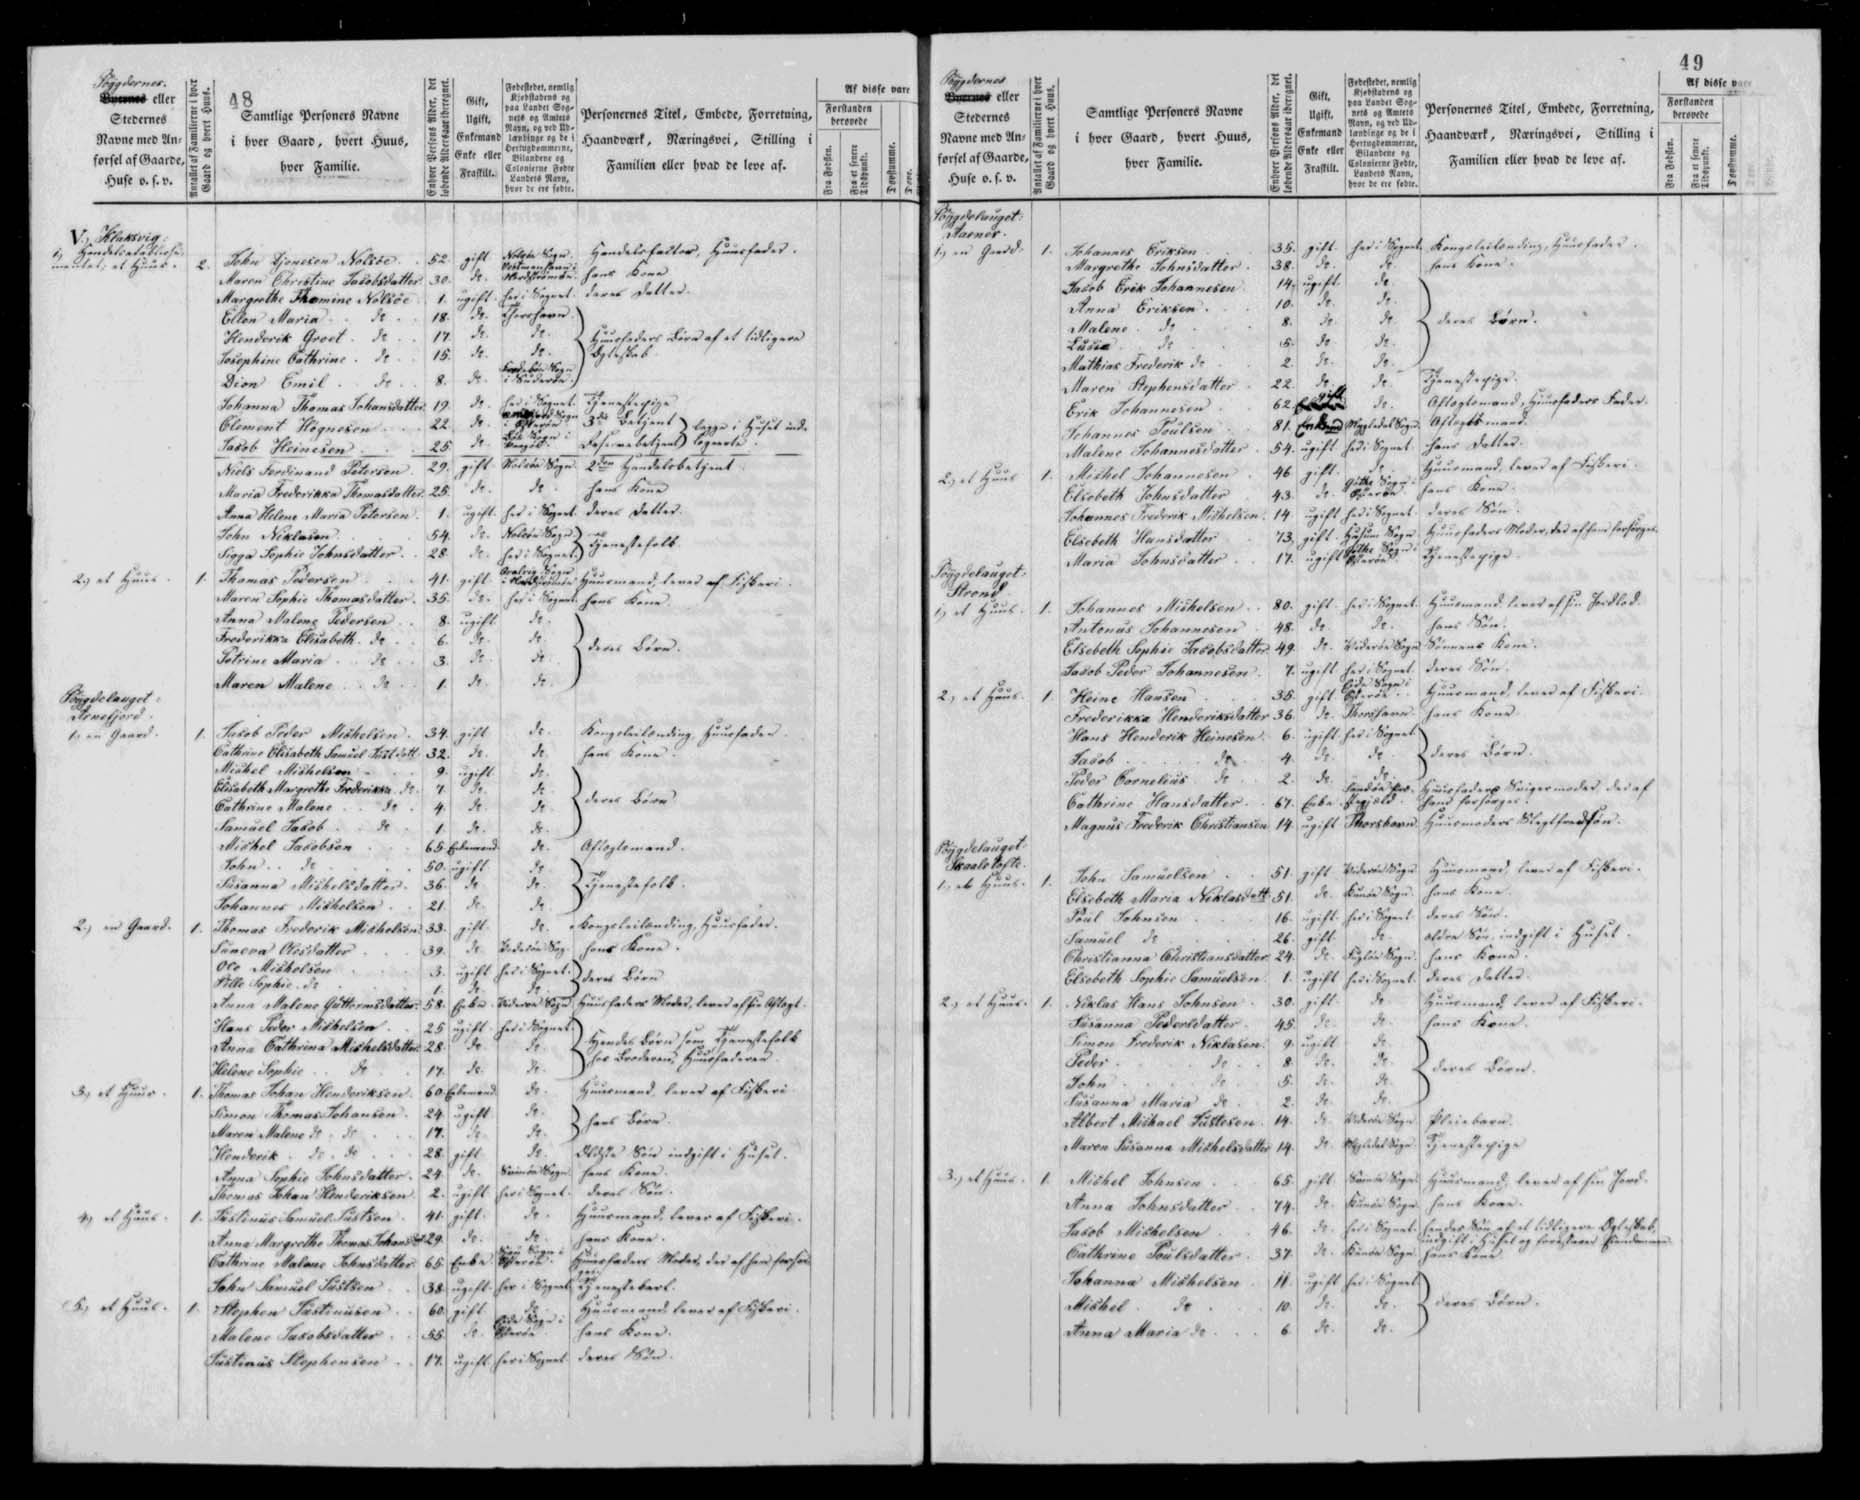 48
Bÿgdernes
Byernes eller Stedernes Navne med Anførsel af Gaarde, Huse o. s. v.
Antallet af Familierne i hver Gaard og hvert Huus.
Samtlige Personers Navne i hver Gaard, hvert Huus, hver Familie.
Enhver Persons Alder, det løbende Aldersaar iberegnet.
Gift, Ugift, Enkemand Enke eller Fraskilt.
Fødestedet, nemlig Kjøbstadens og paa Landet Sognets og Amtets Navn, og ved Udlændinge og de i Hertugdømmerne, Bilandene og Colonierne Fødte Landets Navn, hvor de ere fødte.
Personernes Titel, Embede, Forretning, Haandværk, Næringsvei, Stilling i Familien eller hvad de leve af.
Af disse vare
Forstanden berøvede
Fra Fødslen.
Fra et senere Tidspunkt.
Døvstumme.
Døve.
V. Klaksvig:
1, Handelsetablissementet, et Huus. 2. John Djonesen Nolsöe 52. gift Nolsöe Sogn Handelsfactor, Huusfader.
Maren Christine Jacobsdatter 30. do. Vestmanhavn i Nordströmöe hans Kone
Margrethe Thomine Nolsöe 1. ugift her i Sognet. deres Datter.
Ellen Maria do 18. do. Thorshavn
Henderik Groot do 17. do. do. Huusfaders Børn af et tidligere Ægteskab.
Josephine Cathrine do 15. do. do.
Dion Emil do 8. do. Frodebøe Sogn i Suderöe
Johanna Thomas Johansdatter 19. do. her i Sognet. Tjenestepige
Clement Högnesen 22. do. Sogn i Österöe 3die Betjent
Jacob Heinesen 25. do. Sogn i Reservebetjent logge i Huset inde logerede.
Niels Ferdinand Petersen 29. gift Nolsöe Sogn 2den Handelsbetjent
Maria Frederikka Thomasdatter 25. do. do. hans Kone
Anna Helene Maria Petersen 1. ugift her i Sognet deres Datter.
John Niklasen 54. do. Nolsöe Sogn
Sigga Sophie Johnsdatter 28. do. her i Sognet Tjenestefolk
2., et Huus. 1. Thomas Pedersen 41. gift Qvalvig Sogn i Nordströmöe Huusmand, lever af Fiskeri.
Maren Sophie Thomasdatter 35. do. her i Sognet. hans Kone
Anna Malene Pedersen 8. ugift do.
Frederikka Elisabeth do 6. do. do. deres Børn.
Petrine Maria do 3. do. do.
Maren Malene do 1. do. do.
Bÿgdelauget: Arnefjord.
1., en Gaard. 1. Jacob Peder Mishelsen 34. gift do. Kongsleilænding, Huusfader
Cathrine Elisabeth Samuel Just datt 32. do. do. hans Kone
Mishel Mishelsen 9. ugift do.
Elisabeth Margrethe Frederikka do 7. do. do. deres Børn
Cathrine Malene do 4. do. do.
Samuel Jacob do 1. do. do.
Mishel Jacobsen 65. Enkemand do. Aftægtsmand.
John do 50. ugift do.
Susanna Mishelsdatter 36. do do. Tjenestefolk.
Johannes Mishelsen 21. do. do.
2., en Gaard. 1. Thomas Frederik Mishelsen 33. gift. do. Kongsleilænding, Huusfader.
Suneva Olesdatter 39. do Videröe Sog. hans Kone.
Ole Mishelsen 3. ugift her i Sognet.
Pille Sophie do 1. do. do. deres Børn
Anna Malene Guttormsdatter 58. Enke Videröe Sogn. Huusfaders Moder, lever af sin Aftægt.
Hans Peder Mishelsen 25 ugift her i Sognet.
Anna Cathrina Mishelsdatter 28. do. do. Hendes Børn som Tjenestefolk hos Broderen, Huusfaderen
Helene Sophie do 17. do. do.
3., et Huus. 1. Thomas Johan Henderiksen 60. Enkemand do. Huusmand, lever af Fiskeri
Simon Thomas Johansen 24. ugift do.
Maren Malene do do 17. do. do. hans Børn.
Henderik do do 28. gift do. Ældste Søn indgift i Huset.
Anna Sophie Johnsdatter 24. do. Svinöe Sogn. hans Kone.
Thomas Johan Henderiksen 2. ugift her i Sognet. deres Søn.
4., et Huus. 1. Justinus Samuel Justsen 41. gift. do. Huusmand, lever af Fiskeri.
Anna Margrethe Thomas Johansdatt 29. do. do. hans Kone.
Cathrine Malene Johnsdatter 65. Enke Sogn i Österöe. Huusfaders Moder, der af ham forsørges
John Samuel Justsen 38. ugift her i Sognet Tjenestekarl.
5., et Huus. 1. Stephen Justinusen 60. gift. do. Huusmand, lever af Fiskeri.
Malene Jacobsdatter 55. do. Eide Sogn i Österöe hans Kone.
Justinus Stephensen 17. ugift her i Sognet. deres Søn.
49
Bÿgdernes
Byernes eller Stedernes Navne med Anførsel af Gaarde, Huse o. s. v.
Antallet af Familierne i hver Gaard og hvert Huus.
Samtlige Personers Navne i hver Gaard, hvert Huus, hver Familie.
Enhver Persons Alder, det løbende Aldersaar iberegnet.
Gift, Ugift, Enkemand Enke eller Fraskilt.
Fødestedet, nemlig Kjøbstadens og paa Landet Sognets og Amtets Navn, og ved Udlændinge og de i Hertugdømmerne, Bilandene og Colonierne Fødte Landets Navn, hvor de ere fødte.
Personernes Titel, Embede, Forretning, Haandværk, Næringsvei, Stilling i Familien eller hvad de leve af.
Af disse vare
Forstanden berøvede
Fra Fødslen.
Fra et senere Tidspunkt.
Døvstumme.
Bÿgdelauget: Aarner.
1., en Gaard. 1. Johannes Eriksen 35. gift her i Sognet. Kongsleilænding, Huusfader.
Margrethe Johnsdatter 38. do. do. hans Kone.
Jacob Erik Johannesen 14. ugift do
Anna Eriksen 10. do. do.
Malene do 8. do. do. deres Børn.
Lucie do 5. do. do.
Mathias Frederik do 2. do. do.
Maren Stephensdatter 22. do. do. Tjenestepige.
Erik Johannesen 62. gift do. Aftægtsmand, Huusfaders Fader.
Johannes Poulsen 81. Enkemd Mygledal Sogn. Aftægtsmand.
Malene Johannesdatter 54. ugift her i Sognet. hans Datter.
2., et Huus 1. Mishel Johannesen 46 gift. do. Huusmand, lever af Fiskeri.
Elsebeth Johnsdatter 43. do. Göthe Sogn i Österöe hans Kone.
Johannes Frederik Mishelsen 14 ugift her i Sognet. deres Søn.
Elsebeth Hansdatter 73. gift. Huusum Sogn Huusfaders Moder, der af ham forsørges.
Maria Johnsdatter 17. ugift Göthe Sogn i Österöe Tjenestepige
Bÿgdelauget: Strond.
1., et Huus. 1. Johannes Mishelsen 80. gift her i Sognet. Huusmand lever af sin Jordlod.
Antonius Johannesen 48. do. do. hans Søn.
Elsebeth Sophie Jacobsdatter 49. do. Videröe Sogn Sönnens Kone.
Jacob Peder Johannesen 7. ugift her i Sognet deres Søn.
2., et Huus. 1. Heine Hansen 35. gift Eide Sogn i Österöe Huusmand, lever af Fiskeri.
Frederikke Henderiksdatter 36. do. Thorshavn hans Kone.
Hans Henderik Heinesen 6. ugift her i Sognet
Jacob do 4. do. do. deres Børn.
Peder Cornelius do 2. do. do.
Cathrine Hansdatter 67. Enke Huusfaders Svigermoder, der af ham forsørges.
Magnus Frederik Christiansen 14 ugift Thorshavn Huusmoders Slegtfredsøn.
Bÿgdelauget: Skaaletofte.
1., et Huus. 1. John Samuelsen 51. gift Videröe Sogn. Huusmand, lever af Fiskeri.
Elsebeth Maria Niklasdatt 51. do. Kunöe Sogn. hans Kone.
Poul Johnsen 16. ugift. her i Sognet deres Søn.
Samuel do 26. gift do. ældre Søn, indgift i Huset.
Christianna Christiansdatter 24. do. Fuglöe Sogn. hans Kone.
Elsebeth Sophie Samuelsen 1. ugift her i Sognet. deres Datter.
2., et Huus. 1. Niklas Hans Johnsen 30. gift. do Huusmand, lever af Fiskeri.
Susanna Pedersdatter 45. do. do. hans Kone.
Simon Frederik Niklasen 9. ugift do.
Peder do 8. do. do. deres Børn.
John do 5. do. do.
Susanna Maria do 2. do. do.
Albert Mishael Justesen 14. do. Videröe Sogn Pleiebarn.
Maren Susanna Mishelsdatter 14. do. Mygledal Sogn. Tjenestepige
3., et Huus. 1. Mishel Johnsen 65. gift Svinöe Sogn. Huusmand, lever af sin Jord.
Anna Johnsdatter 74. do. Kunöe Sogn. hans Kone.
Jacob Mishelsen 46. do. her i Sognet hendes Søn af et tidligere Ægteskab, indgift i Huset og forestaaer Eiendommen
Cathrine Poulsdatter 37. do. Kunöe Sogn hans Kone
Johanna Mishelsen 11. ugift her i Sognet
Mishel do 10. do. do. deres Børn.
Anna Maria do 6. do. do.